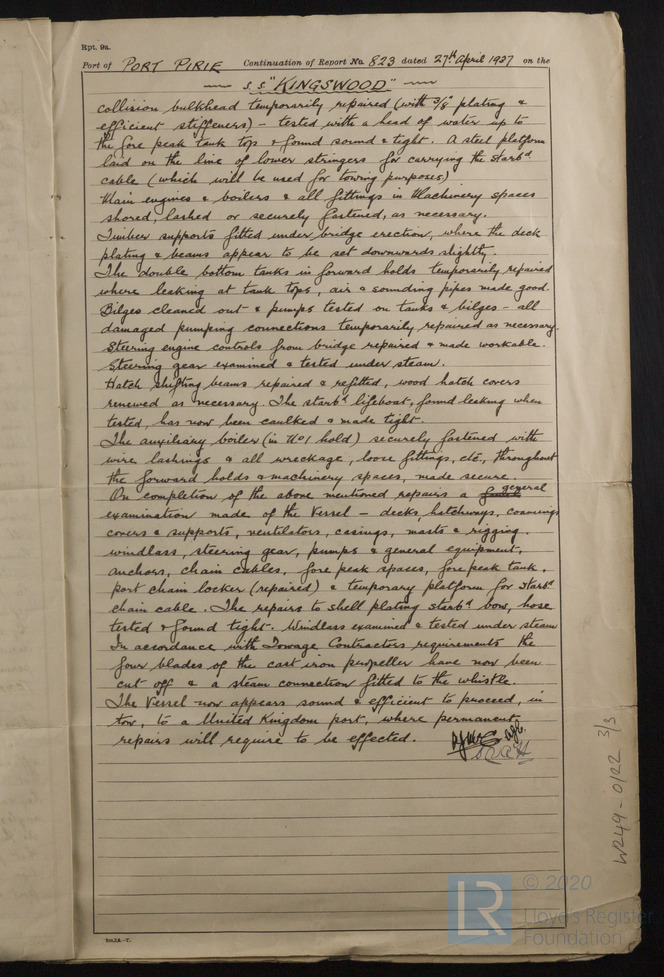 Rpt. 9a.
Port of PORT PIRIE Continuation of Report No. 823 dated 27th April 1937 on the
S.S "KINGSWOOD"
collision bulkhead temporarily repaired (with 3/8" plating &
efficient stiffeners) – tested with a head of water up to
the fore peak tank top & found sound & tight. A steel platform
laid on the line of lower stringers for carrying the starbd
cable (which will be used for towing purposes)
Main engines & boilers & all fittings in Machinery spaces
shored, lashed or securely fastened, as necessary.
Timber supports fitted under bridge erection, where the deck
plating & beams appear to be set downwards slightly.
The double bottom tanks in forward holds temporarily repaired
where leaking at tank tops, air & sounding pipes made good.
Bilges cleaned out & pumps tested on tanks & bilges – all
damaged pumping connections temporarily repaired as necessary.
Steering engine controls from bridge repaired & made workable.
Steering gear examined & tested under steam.
Hatch shifting beams repaired & refitted, wood hatch covers
renewed as necessary. The starbd lifeboat, found leaking when
tested, has now been caulked & made tight.
The auxiliary boiler (in No 1 hold) securely fastened with
wire lashings & all wreckage, loose fittings, etc, throughout
the forward holds & machinery spaces, made secure.
On completion of the above mentioned repairs a general
examination made of the Vessel – decks, hatchways, coamings
covers & supports, ventilators, casings, masts & rigging.
windlass, steering gear, pumps & general equipment,
anchors, chain cables, fore peak spaces, fore peak tank,
port chain locker (repaired) & temporary platform for starbd
chain cable. The repairs to shell plating starbd bow, hose
tested & found tight. Windlass examined & tested under steam
In accordance with Towage Contractors requirements the
four blades of the cast iron propeller have now been
cut off & a steam connection fitted to the whistle.
The Vessel now appears sound & efficient to proceed, in
tow, to a United Kingdom port, where permanent
repairs will require to be effected.
W249-0122 3/3
© 2020
LR
Lloyd's Register
Foundation